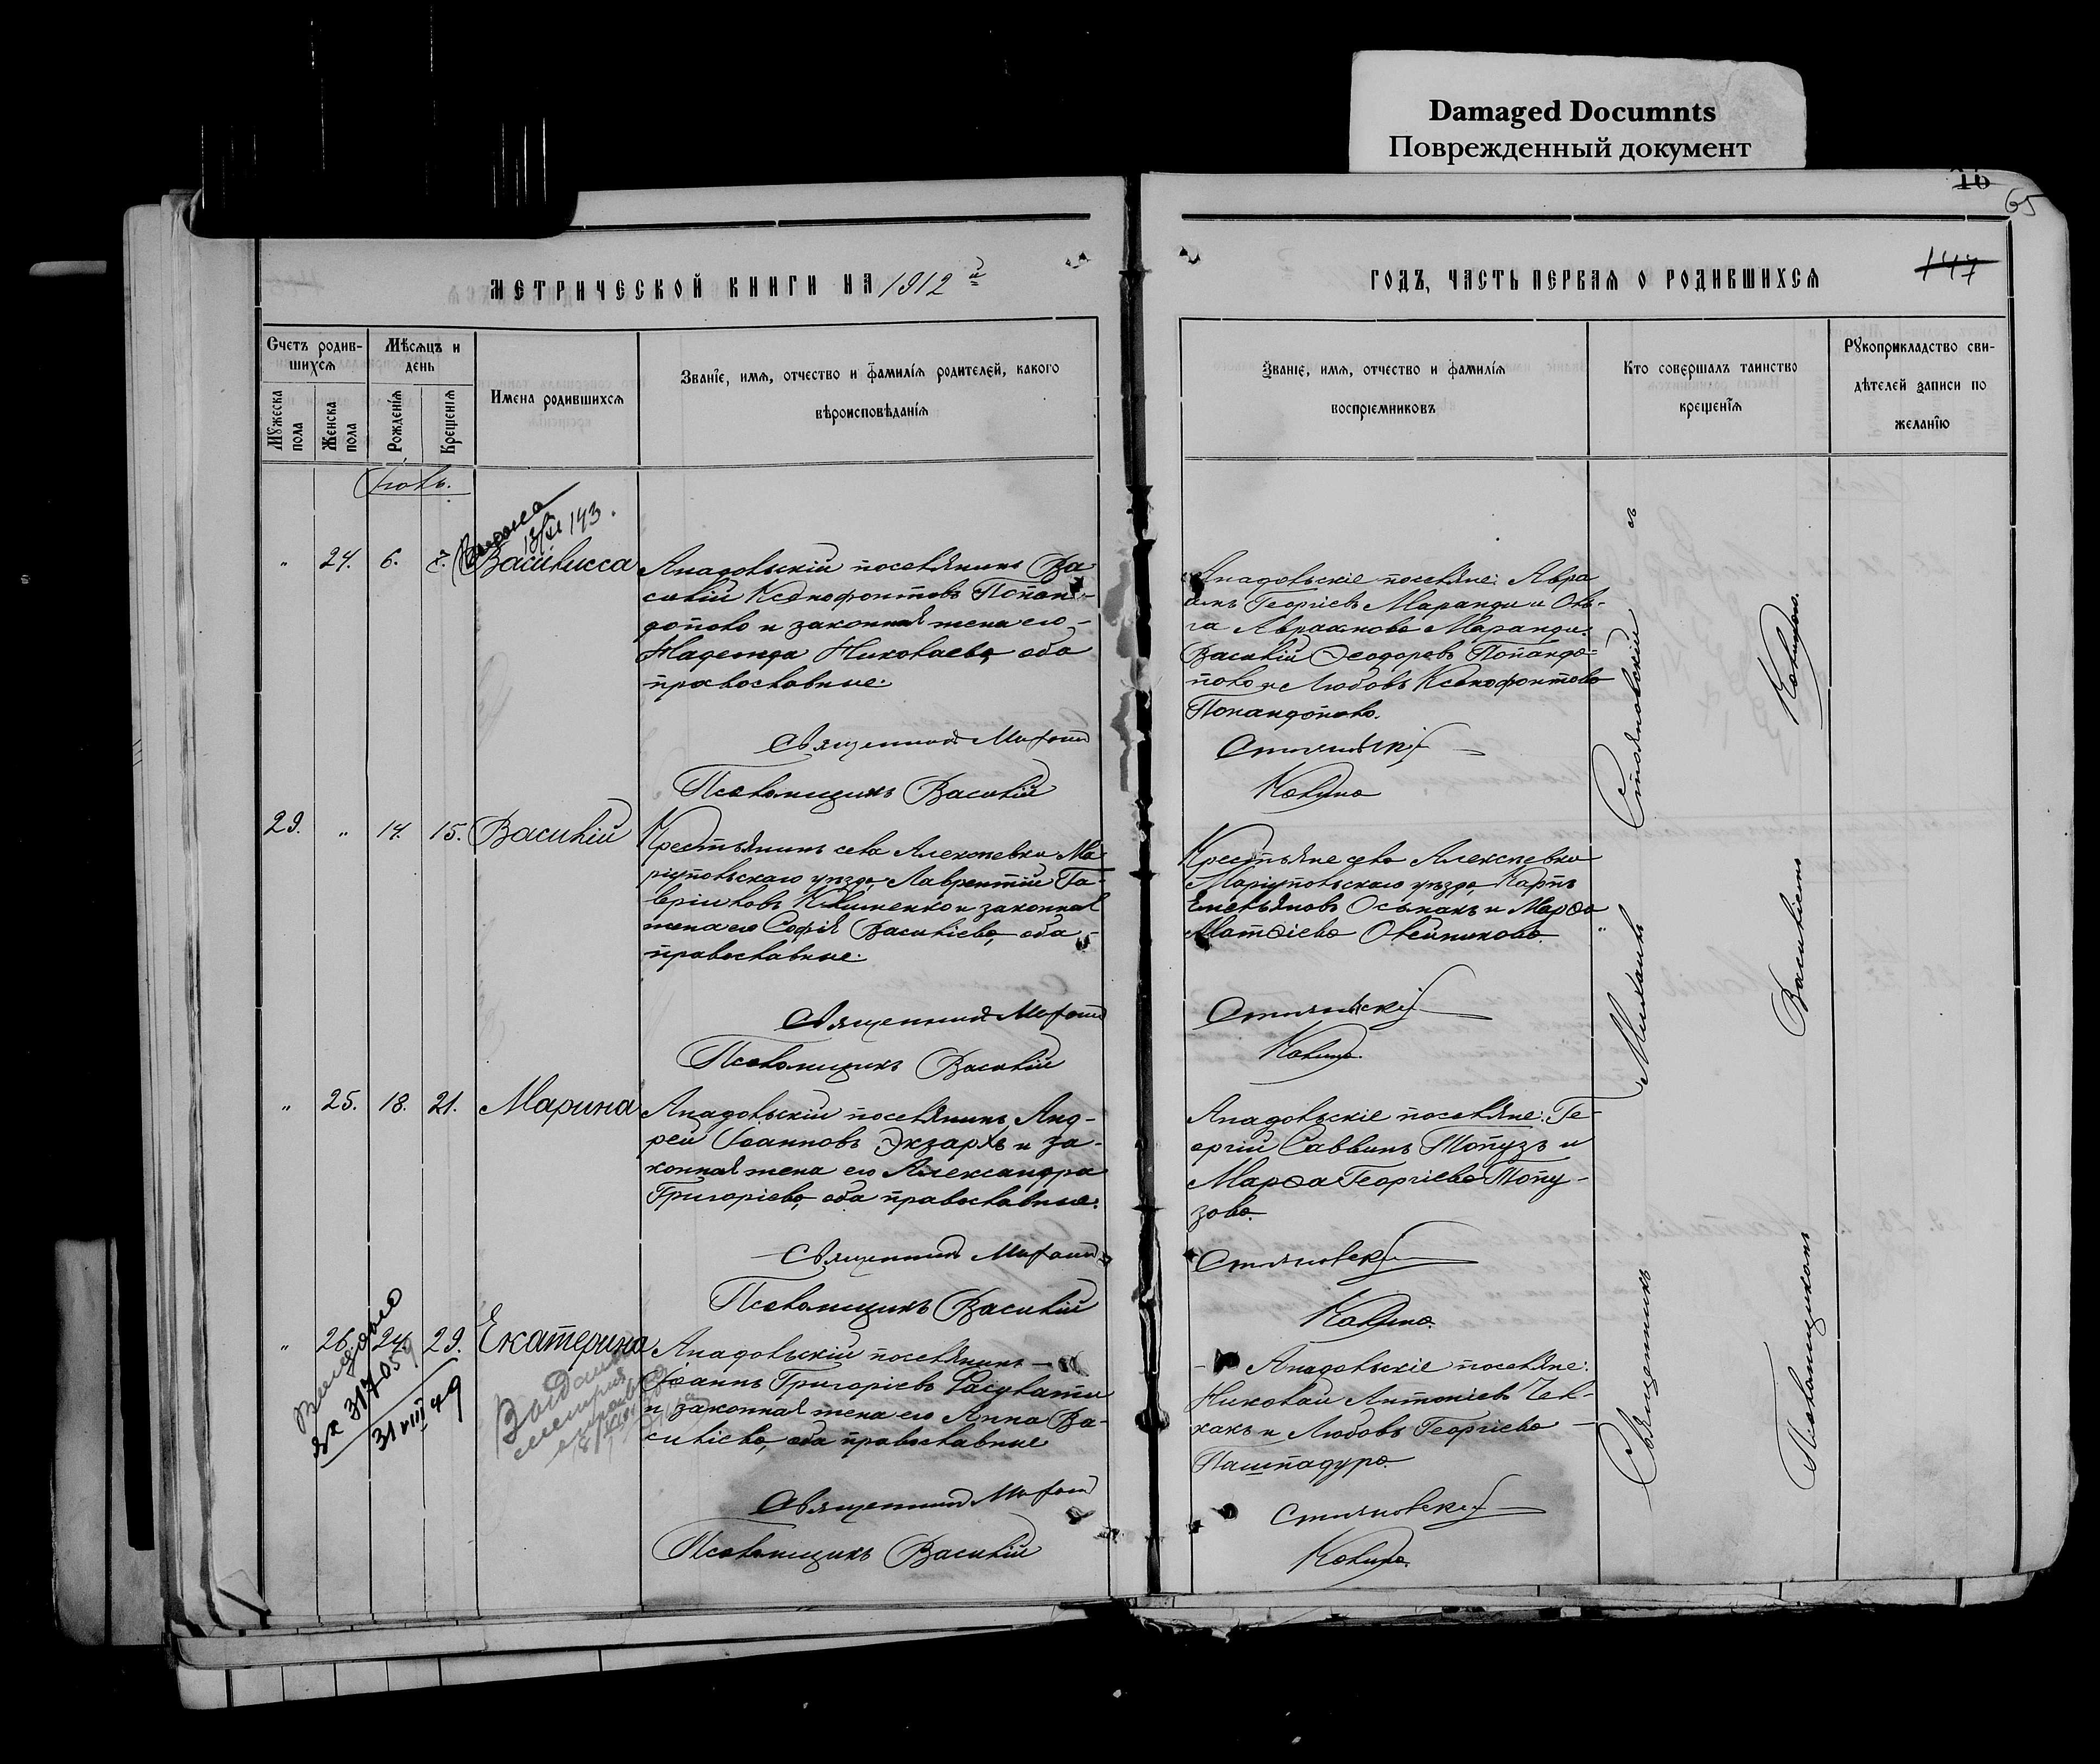 Damaged Documnts
Поврежденный документ
16
65
147
МЕТРИЧЕСКОЙ КНИГИ НА 1912 й
ГОДЪ, ЧАСТЬ ПЕРВАЯ О РОДИВШИХСЯ
Счетъ родив-
шихся
Мужеска пола
Женска пола
Мѣсяцъ и
день
Рожденія
Крещенія
Имена родившихся
Званіе, имя, отчество и фамилія родителей, какого
вѣроисповѣданія
Званіе, имя, отчество и фамилія
воспріемниковъ
Кто совершалъ таинство
крещенія
Рукоприкладство сви-
дѣтелей записи по
желанію
Іюль.
" 24. 6. Василисса
Анадольскій поселянинъ Ва
силій Ксенофонтовъ Попан-
дополо и законная жена его
Надежда Николаева, оба
православные.
Священникъ Михаилъ
Псаломщикъ Василій
Анадольскіе поселяне: Авра
амъ Георгіевъ Маранди и Оль-
га Авраамова Маранди.
Василій Ѳеодоровъ Попандо-
поло и Любовь Ксенофонтова
Попандополо.
Стояновскій
Колида
29. " 14. 15. Василій
Крестьянинъ села Алексѣевки Ма
ріупольскаго уѣзда Лаврентій Га-
вріиловъ Клименко и законная
жена его Софія Васильева, оба
православные.
Священникъ Михаилъ
Псаломщикъ Василій
Крестьяне села Алексѣевки
Маріупольскаго уѣзда Карпъ
Емельяновъ Осьмакъ и Марѳа
Матѳіева Олейникова.
Стояновскій
Колида.
" 25. 18. 21. Марина
Анадольскій поселянинъ Анд-
рей Іоанновъ Экзархъ и за-
конная жена его Александра
Григоріева, оба православные.
Священникъ Михаилъ
Псаломщикъ Василій
Анадольскіе поселяне: Ге-
оргій Саввинъ Топузъ и
Марѳа Георгіева Топу-
зова.
Стояновскій
Колида.
" 26. 24. 29. Екатерина
31 VIII 49
Анадольскій поселянинъ
Іоаннъ Григоріевъ
и законная жена его Анна Ва-
сильева, оба православные
Священникъ Михаилъ
Псаломщикъ Василій
Анадольскіе поселяне:
Николай Антоніевъ Чел-
хакъ и Любовь Георгіева
Пашпадура.
Стояновскій
Колида.
Священникъ Михаилъ Стояновскій съ
Псаломщикомъ Василіемъ Колидою.